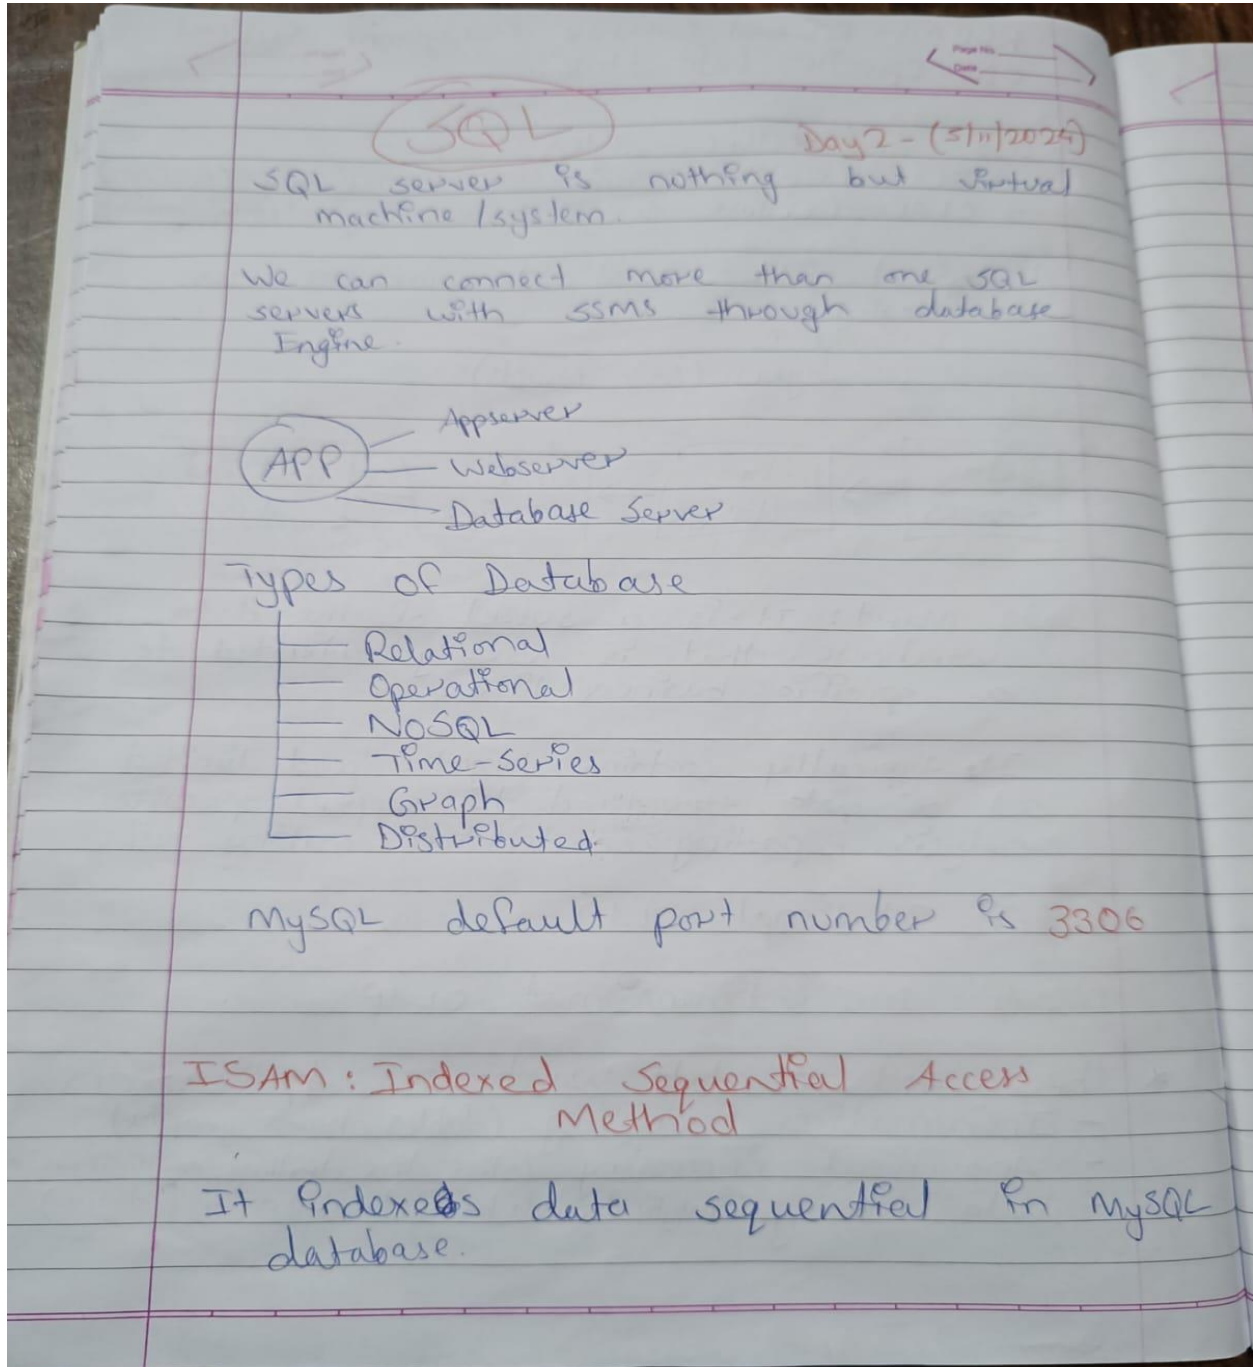 Page No.
Date
SQL
Day 2 - (5/11/2024)
SQL server is nothing but virtual
machine / system.
We can connect more than one SQL
servers with SSMS through database
Engine.
Appserver
APP
Webserver
Database Server
Types of Database
Relational
Operational
NoSQL
Time-Series
Graph
Distributed.
MySQL default port number is 3306
ISAM : Indexed Sequential Access
Method
It indexes data sequential in MySQL
database.